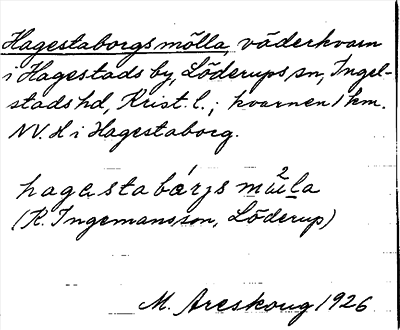 Hagestaborgs mölla, väderkvarn
i Hagestads by, Löderups sn, Ingel-
stads hd, Krist. l.; kvarnen 1 km.
NV. H i Hagestaborg.
(R. Ingemansson, Löderup)
M. Areskoug 1926